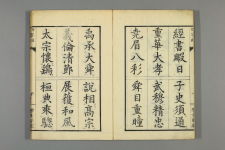 經書暇日 子史須通
重華大孝 武穆精忠
堯眉八彩 舜目重瞳
禹承大舜 說相高宗
義倫清節 展獲和風
太宗懷鷂 桓典乘驄